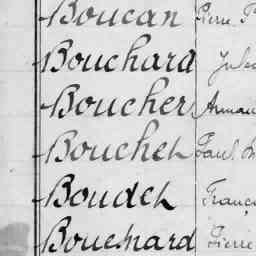 Boucan Pierre
Bouchard Jules
Boucher Arman
Bouchet Paul
Boudet Franç
Bouesnard Pierre